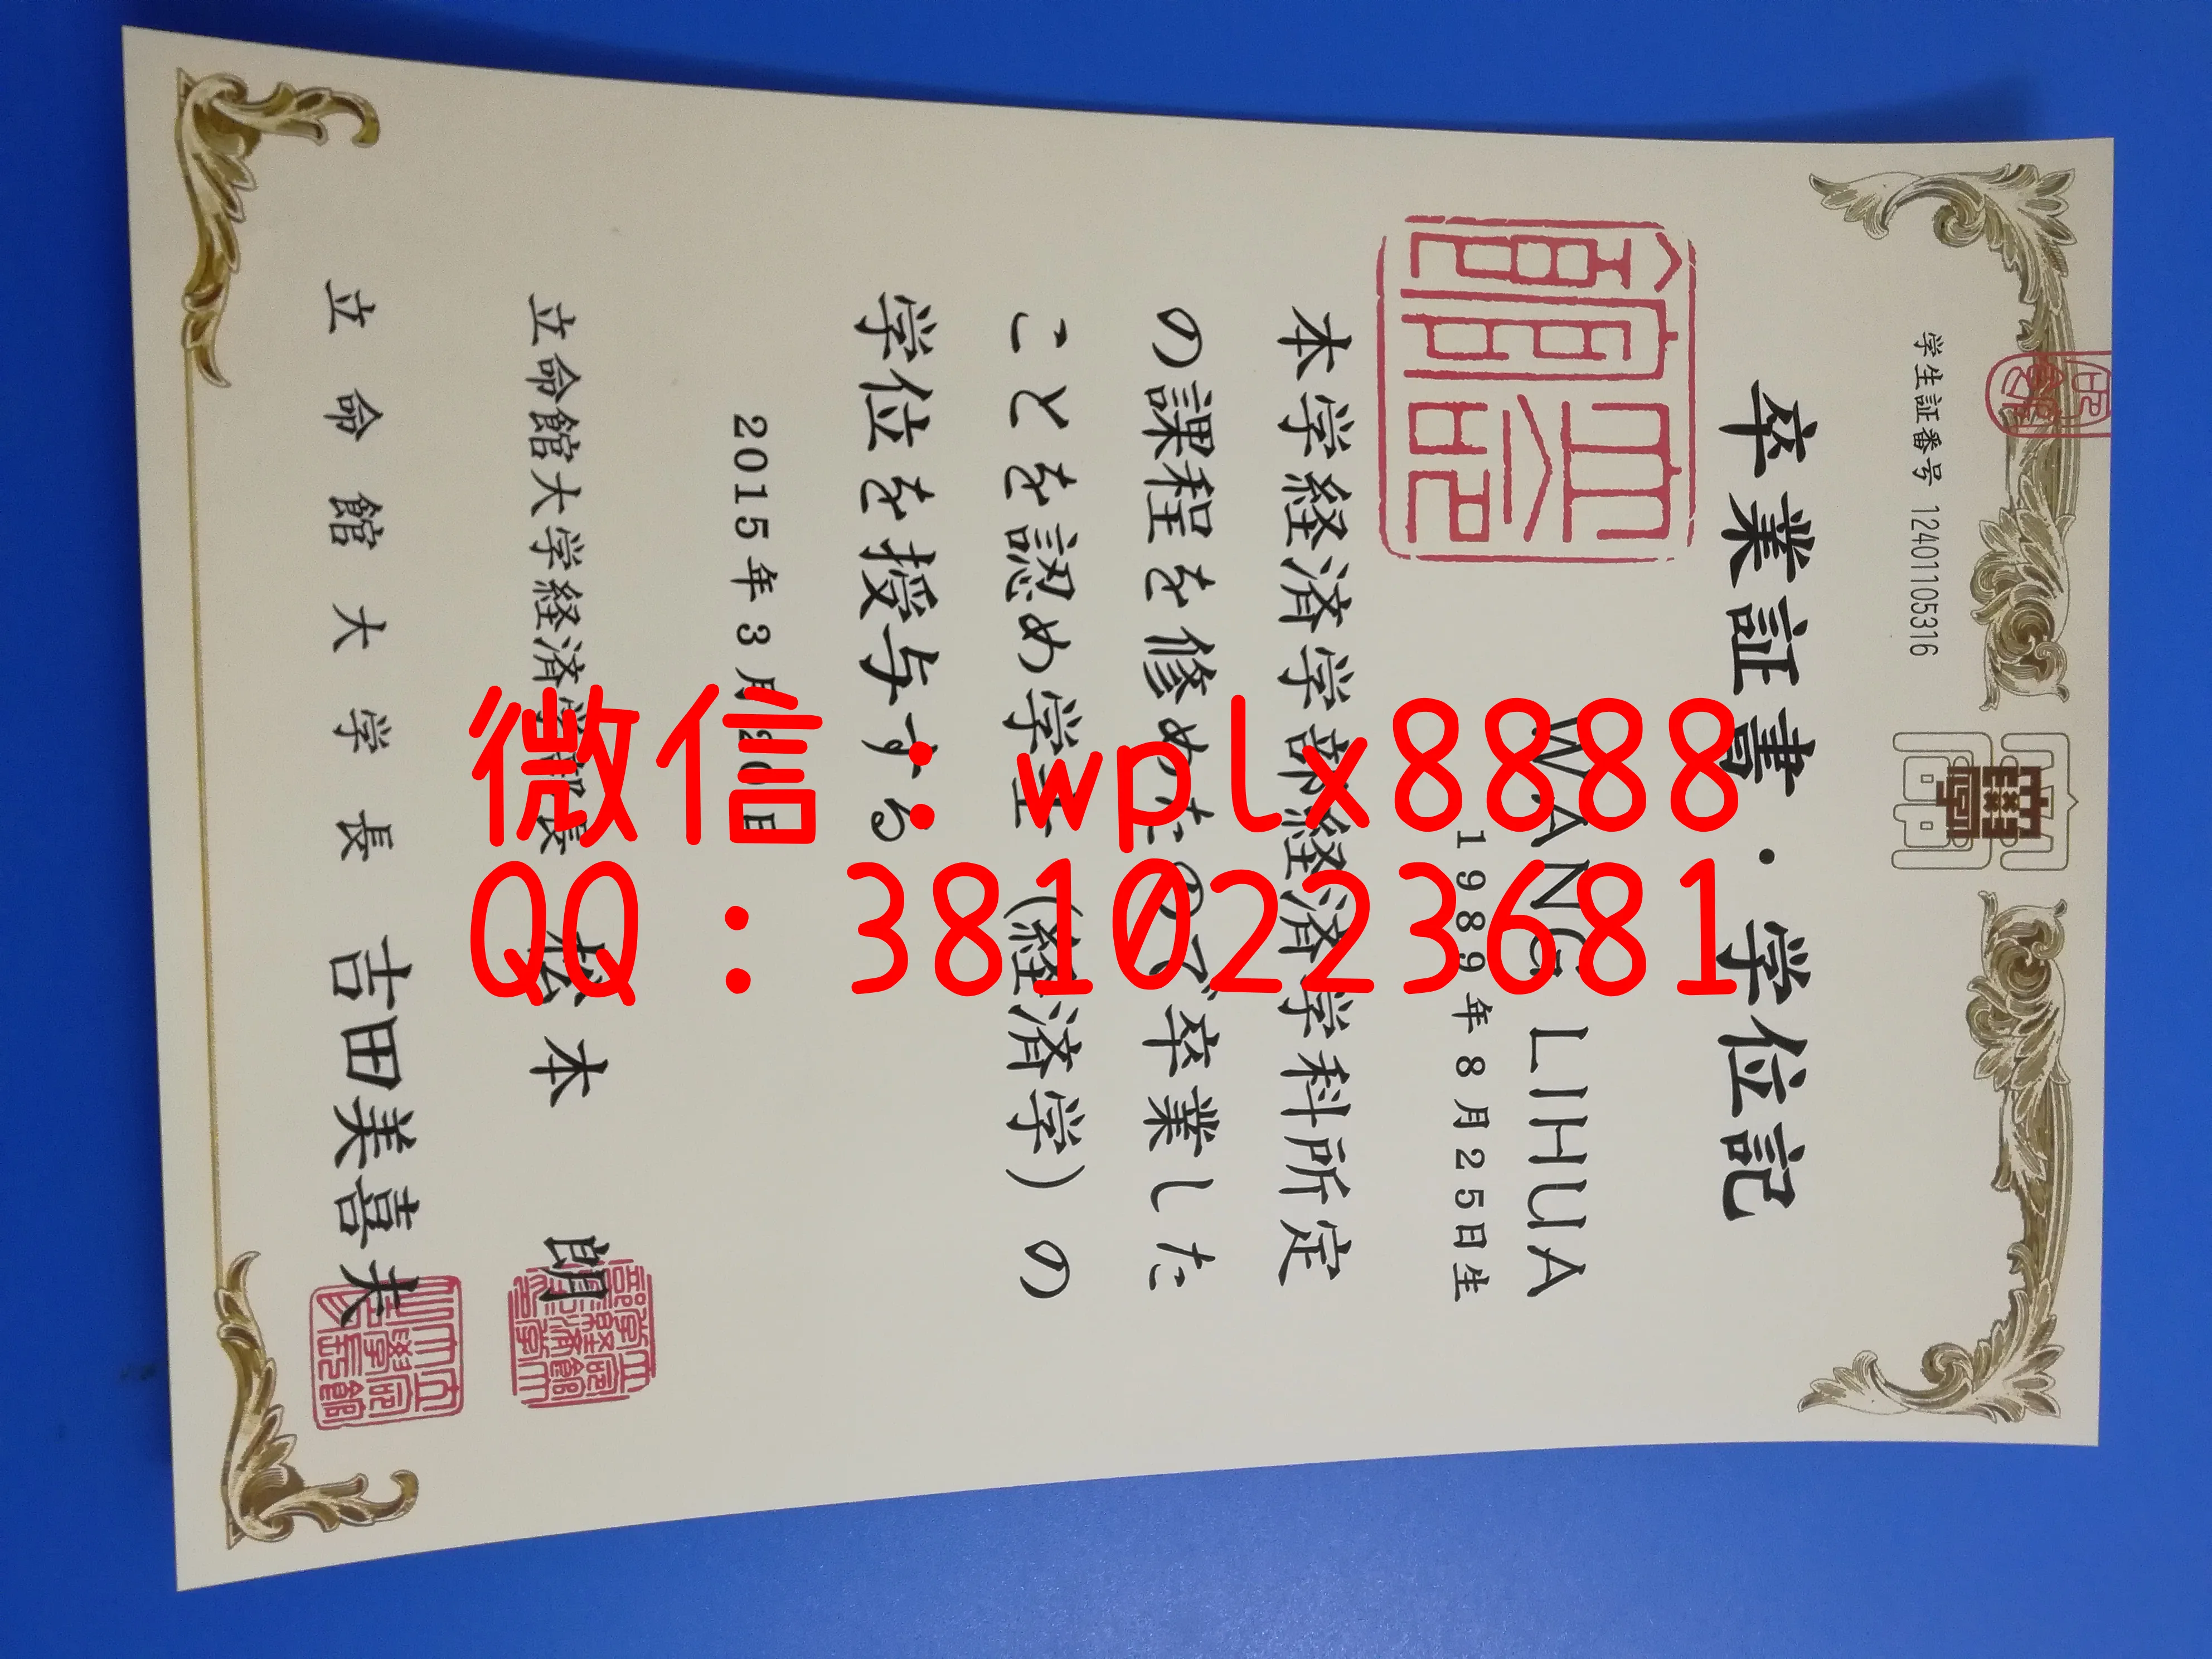 学生証番号 12401105316
卒業証書・学位記
WANG LIHUA
1989年8月25日生
本学経済学部経済学科所定
の課程を修めたので卒業した
ことを認め学士(経済学)の
学位を授与する
2015年3月20日
立命館大学経済学部長 松本 朗
立命館大学長 吉田美喜夫
微信：wplx8888
QQ：3810223681